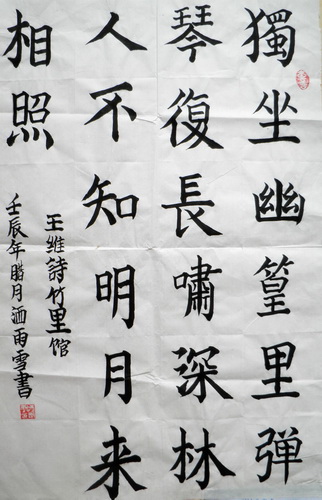 獨坐幽篁里弹
琴復長嘯深林
人不知明月来
相照
王维詩竹里馆
壬辰年腊月洒雨雪書